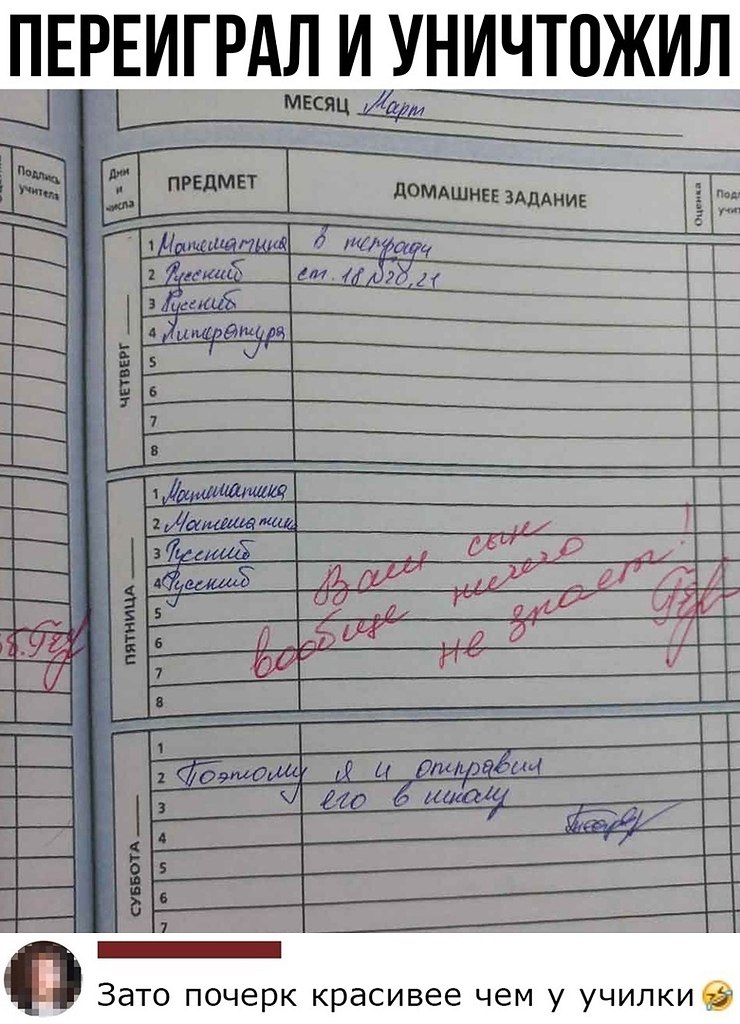 ПЕРЕИГРАЛ И УНИЧТОЖИЛ
МЕСЯЦ Март
Подпись учителя
Дни и числа ПРЕДМЕТ ДОМАШНЕЕ ЗАДАНИЕ Оценка
ЧЕТВЕРГ
1 Математика в тетради
2 Русский ст. 18 №20,21
3 Русский
4 Литература
5
6
7
8
ПЯТНИЦА
1 Математика
2 Математика
3 Русский
4 Русский
5
6
7
8
Ваш сын
вообще ничего
не знает!
СУББОТА
1
2 Поэтому я и отправил
3 его в школу
4
5
6
7
Зато почерк красивее чем у училки🤣